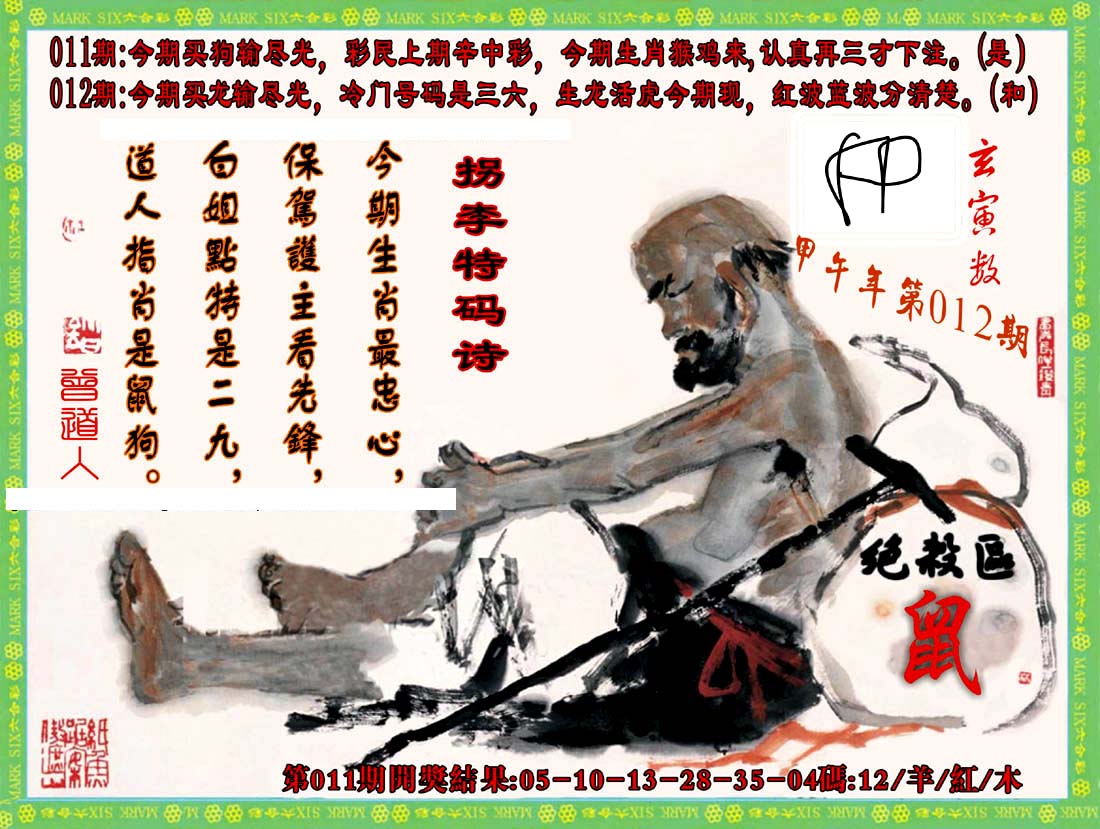 MARK SIX六合彩
011期:今期买狗输尽光，彩民上期幸中彩，今期生肖猴鸡来,认真再三才下注。(是)
012期:今期买龙输尽光，冷门号码是三六，生龙活虎今期现，红波蓝波分清楚。(和)
玄寅数
甲午年第012期
拐李特码诗
今期生肖最忠心，
保駕護主看先鋒，
白姐點特是二九，
道人指肖是鼠狗。
曾道人
绝殺區
鼠
第011期開獎結果:05-10-13-28-35-04碼:12/羊/紅/木